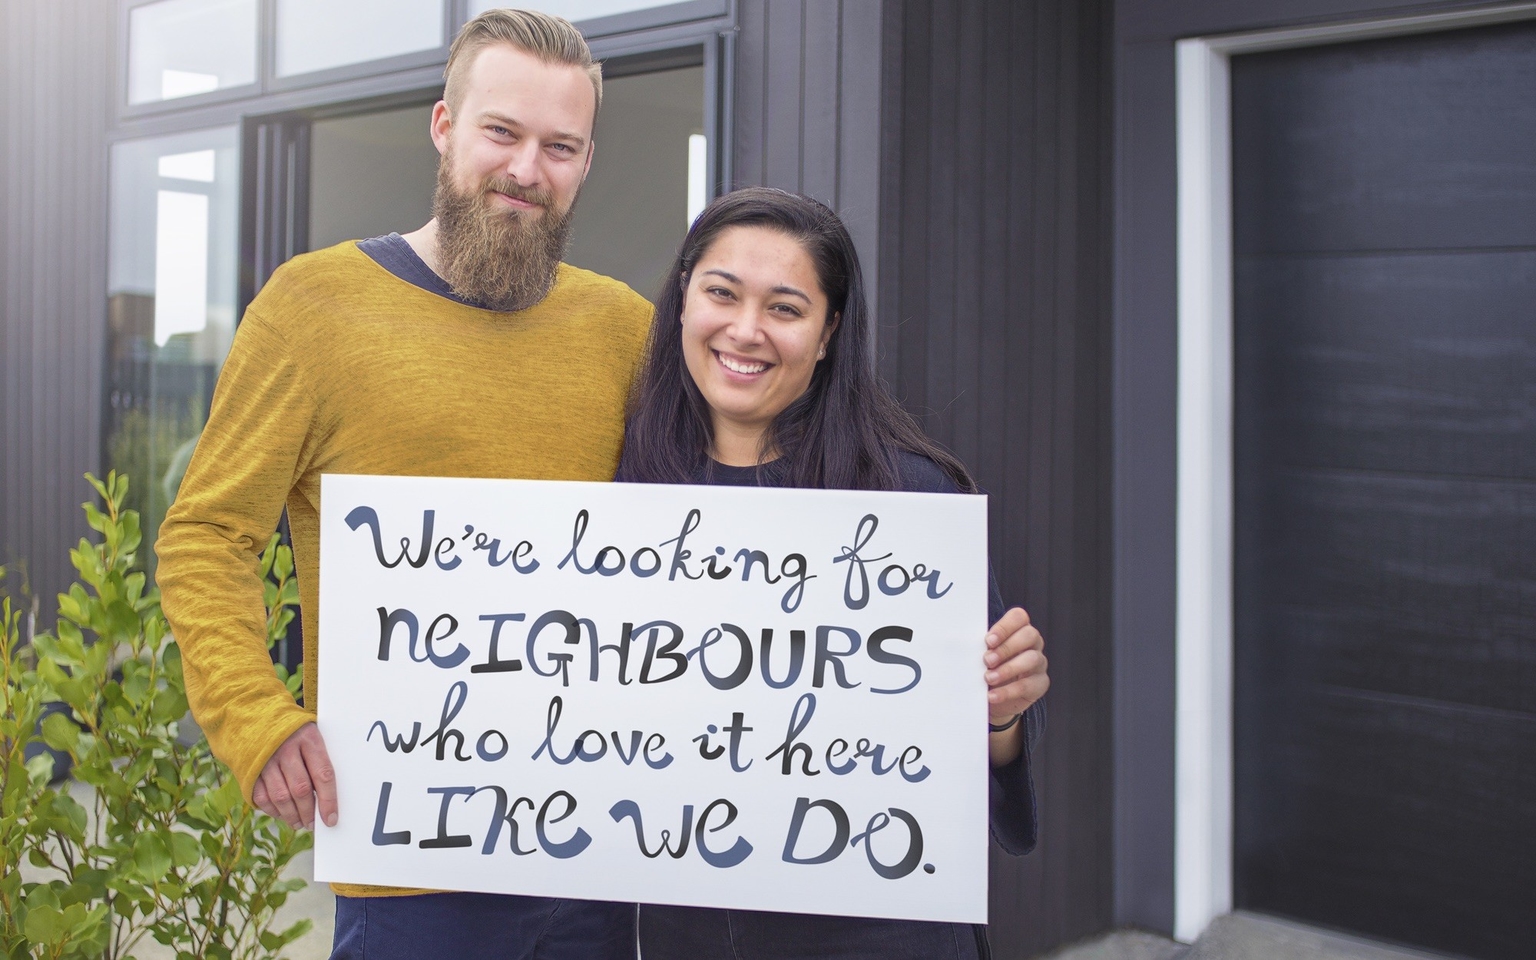 We're looking for
neIGHBOURS
who love it here
LIKe We DO.